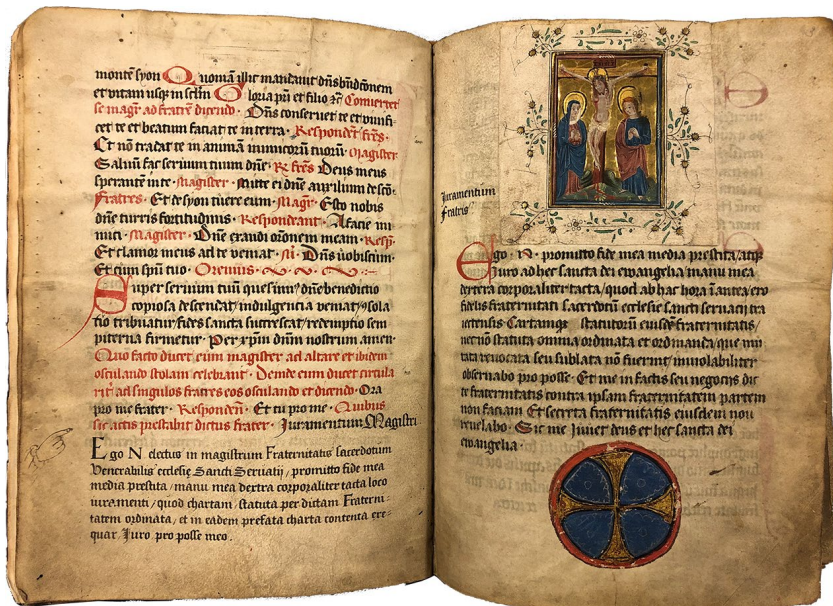 montē syon Quoniā illic mandauit dñs bñdictōnem
et vitam usqꝫ in sclm̄ Gloria p̄ri et filio ⁊c̄ Conuertet
se magr̄ ad fratrē dicendo. Dñs conseruet te et viuifi-
cet te et beatum faciat te in terra. Respondēt frēs.
Et nō tradat te in animā inimicorū tuorū. Magister
Saluū fac seruum tuum dñe. R frēs Deus meus
sperantē in te. Magister. Mitte ei dñe auxilium de scō.
Fratres. Et de syon tuere eum. Magr̄. Esto nobis
dñe turris fortitudinis. Respondeant. A facie ini
mici. Magister. Dñe exaudi orōnem meam. Resp̄.
Et clamor meus ad te veniat. Mi. Dñs vobiscum.
Et cum spū tuo. Oremus.
Super seruum tuū quesum⁹ dñe benedictio
copiosa descendat/indulgencia veniat/9sola
tio tribuatur/fides sancta succrescat/redemptio sem
piterna firmetur. Per xp̄um dñm nostrum amen.
Quo facto ducet eum magister ad altare et ibidem
osculando stolam celebrant. Deinde eum ducet circula
rit̄ ad singulos fratres eos osculando et dicendo. Ora
pro me frater. Respondeñ. Et tu pro me. Quibus
sic actis prestabit dictus frater. Juramentum Magistri
Ego N electus in magistrum Fraternitatis sacerdotum
Venerabilis ecclesię Sancti Seruatij, promitto fide mea
media prestita, manu mea dextra corporaliter tacta loco
iuramenti, quod chartam, statuta per dictam Fraterni-
tatem ordinata, et in eadem prefata charta contenta exe-
quar. Juro pro posse meo.
Juramentum
Fratris
Ego. N. promitto fide mea media prestita/atqꝫ
Juro ad hec sancta dei ewangelia/manu mea
dextera corporaliter tacta/quod ab hac hora ī antea/ero
fidelis fraternitati sacerdotū ecclesie sancti seruacij tra
iectensis Cartamqꝫ statutorū eiusdē fraternitatis/
necnō statuta omnia/ordinata et ordinanda/que mi
tata reuocata seu sublata nō fuerint/inuiolabiliter
obseruabo pro posse. Et me in factis seu negocijs dic
te fraternitatis contra ipsam fraternitatem partem
non faciam Et secreta fraternitatis eiusdem non
reuelabo. Sic me iuuet deus et hec sancta dei
ewangelia.